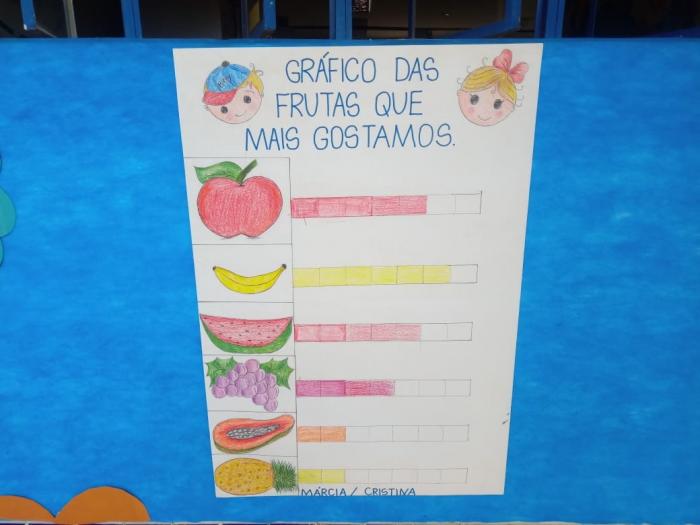 GRÁFICO DAS
FRUTAS QUE
MAIS GOSTAMOS.
MÁRCIA / CRISTINA